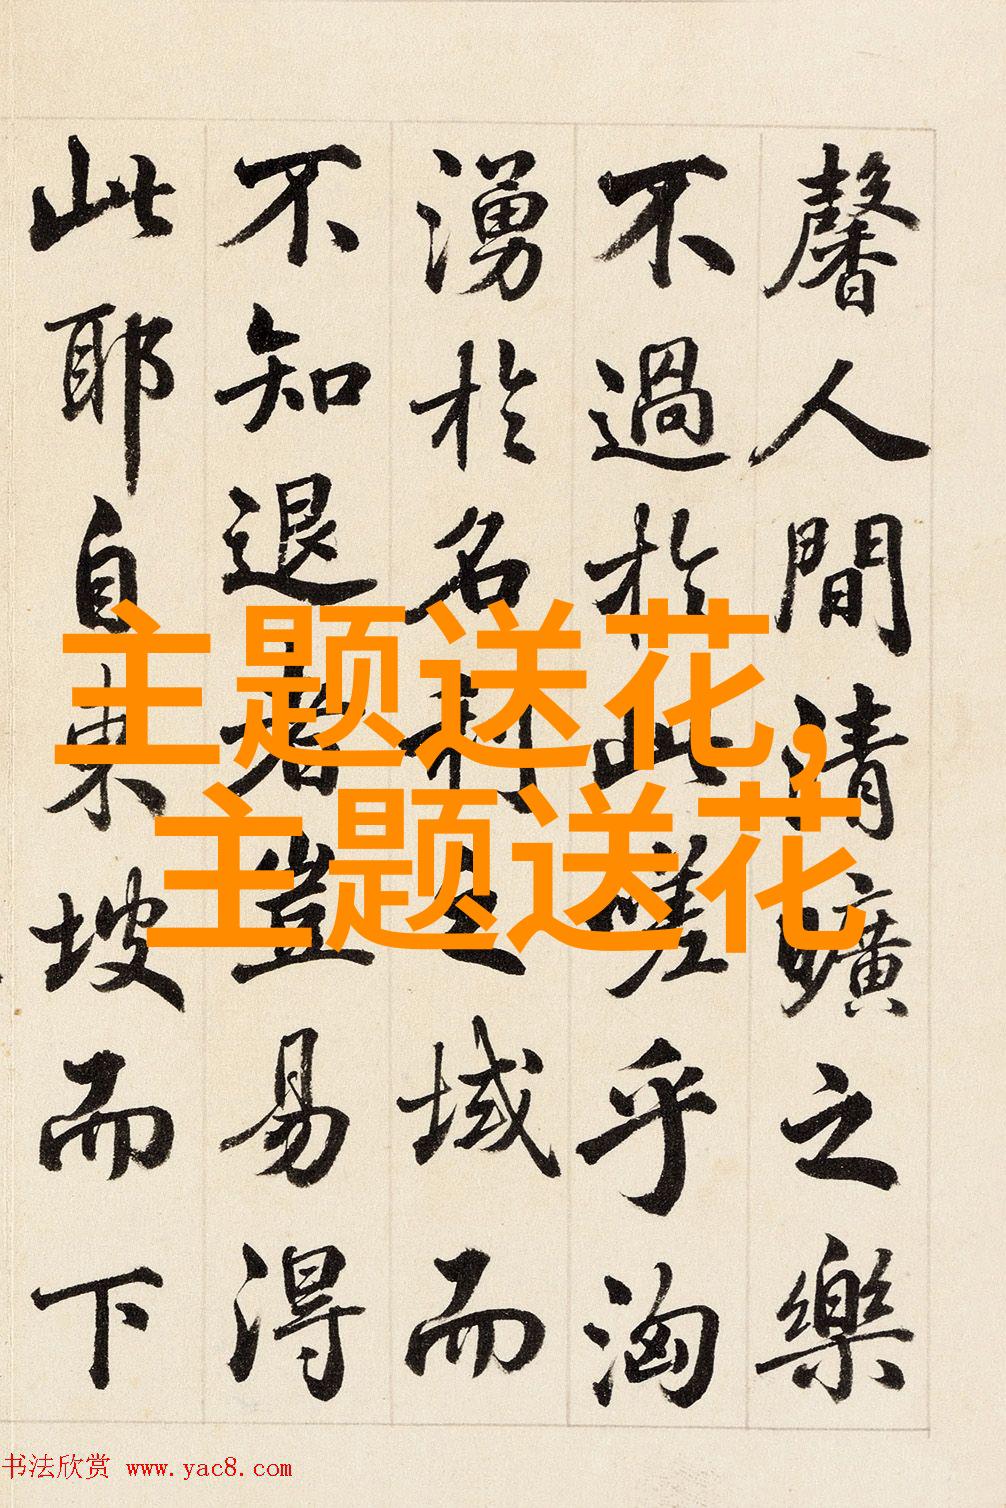 馨人間清曠之樂
不過於此嗟乎洶
湧於名利之域而
不知退者豈易得
此耶自東坡而下
主题送花,
主题送花
书法欣赏 www.yac8.com